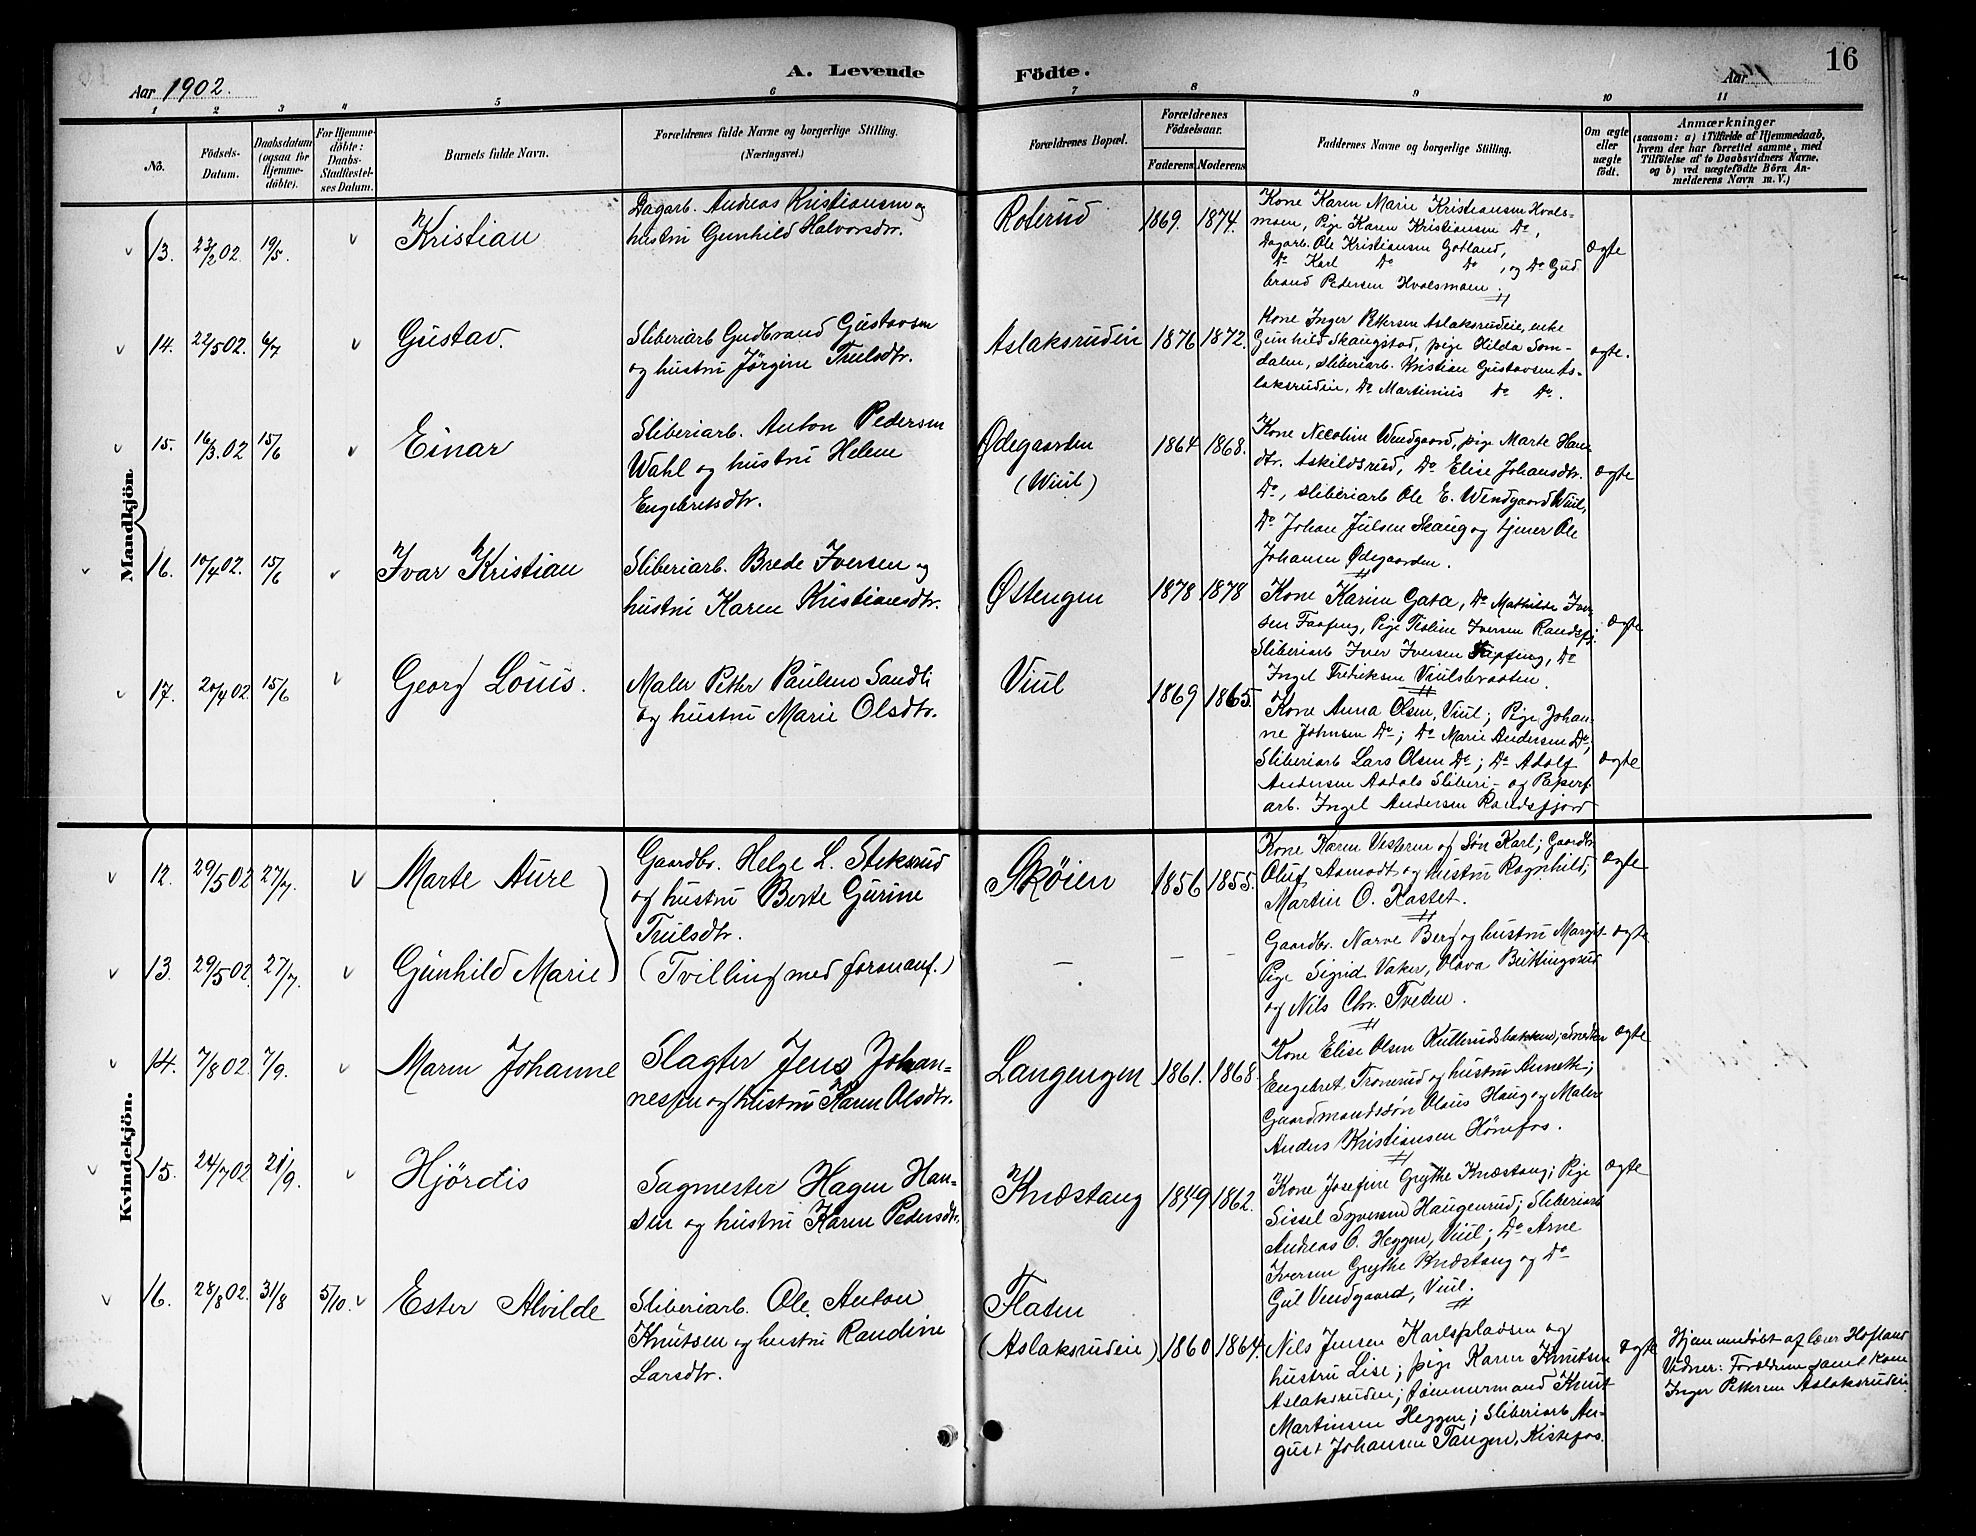 Aar 1902.
A. Levende
Födte.
Aar
16
1
2
3
4
5
6
7
8
9
10
11
No.
Födsels-
Datum.
Daabsdatum
(ogsaa for
Hjemme-
döbte).
For Hjemme-
döbte:
Daabs-
Stadfæstel-
ses Datum.
Barnets fulde Navn.
Forældrenes fulde Navne og borgerlige Stilling.
(Næringsvei.)
Forældrenes Bopæl.
Forældrenes
Födselsaar.
Faderens
Moderens
Faddernes Navne og borgerlige Stilling.
Om ægte
eller
uægte
födt.
Anmærkninger
(saasom: a) i Tilfælde af Hjemmedaab,
hvem der har forrettet samme, med
Tilföielse af to Daabsvidners Navne,
og b) ved uægtefödte Börn An-
melderens Navn m. V.)
Mandkjön.
13. 23/2 02. 19/5. Kristian
Dagarb. Andreas Kristiansen og
hustru Gunhild Halvorsdtr.
Roterud 1869. 1874.
Kone Karen Marie Kristiansen Hvals-
moen, Pige Karen Kristiansen Do,
Dagarb. Ole Kristiansen Gotland,
Do Karl Do Do, og Do Gud
brand Pedersen Hvalsmoen.
ægte
14. 22/5 02. 6/7 Gustav.
Sliberiarb Gudbrand Gustavsen
og hustru Jørgine Trulsdtr.
Aslaksrudeie 1876 1872.
Kone Inger Pettersen Aslaksrudeie, enke
Gunhild Skaugstad, pige Hilda Som-
dalen, sliberiarb. Kristian Gustavsen As-
laksrudeie, Do Martinius Do Do.
ægte.
15. 16/3 02 15/6 Einar
Sliberiarb. Anton Pedersen
Wahl og hustru Helene
Engebretsdtr.
Ødegaarden
(Wiul)
1864 1868.
Kone Nicoline Wendgaard, pige Marte Han
dtr. Askildsrud, Do Elise Johansdtr.
Do, sliberiarb Ole E. Wendgaard Wiul,
Do Johan Julsen Skaug og tjener Ole
Johansen Ødegaarden.
ægte
16. 10/4 02. 15/6 Ivar Kristian
Sliberiarb. Brede Iversen og
hustru Karen Kristiansdtr.
Østengen 1878 1878
Kone Karine Gata, Do Mathilde Iver
sen Pige Iversen Randsfj.
Sliberiarb Iver Iversen Do
Ingel Fredriksen Viulsbraaten.
ægte
17. 20/4 02 15/6 Georg Louis.
Maler Petter Paulsen Sandli
og hustru Marie Olsdtr.
Viul 1869 1865.
Kone Anna Olsen, Viul; Pige Johan-
ne Johnsen Do; Do Marie Andersen Do;
Sliberiarb Lars Olsen Do; Do Adolf
Andersen Aadals Sliberi- og Papirf.
arb. Ingel Andersen Randsfjord
ægte
Kvindekjön.
12. 29/5 02 27/7. Marte Aure
Gaardbr. Helge L. Steksrud
og hustru Berte Gurine
Trulsdtr.
Skøien 1856 1855.
Kone Karen Vesteren og Søn Karl; Gaardbr.
Oluf Aamodt og hustru Ragnhild;
Martin O. Kastet.
ægte
13. 29/5 02. 27/7. Gunhild Marie
(Tvilling med foranauf.)
— — —
Gaardbr. Narve Berg og hustru Margit
Pige Sigrid Vaker, Olava Buttingsrud
og Nils Chr. Tveten.
ægte
14. 7/8 02. 7/9. Maren Johanne
Slagter Jens Johan-
nessen og hustru Karen Olsdtr.
Langengen 1861. 1868.
Kone Elise Olsen Kullerudsbakken; Snedker
Engebret Tronrud og hustru Anneth;
Gaardmandssøn Olaus Haug og Maler
Anders Kristiansen Hönefos.
ægte
15. 24/7 02 21/9. Hjördis
Sagmester Hagen Han-
sen og hustru Karen Pedersdtr.
Knæstang 1849 1862.
Kone Josefine Grythe Knæstang; Pige
Sissel Syversen Haugenrud; Sliberiarb
Andreas O. Heggen, Viul; Do Arne
Iversen Grythe Knæstang og Do
Gul Vendgaard, Viul.
ægte
16. 28/8 02. 31/8 5/10. Ester Alvilde
Sliberiarb. Ole Anton
Knutsen og hustru Randine
Larsdtr.
Flaten
(Aslaksrudeie) 1860 1864.
Nils Jensen Karlspladsen og
hustru Lise; pige Karen Knutsen
Aslaksrudeie; tömmermand Knut
Martinsen Heggen; Sliberiarb Au-
gust Johansen Tangen, Kistefos.
ægte
Hjemmedöbt af lærer Hofland
Vidner: Forældrene samt kone
Inger Pettersen Aslaksrudeie.